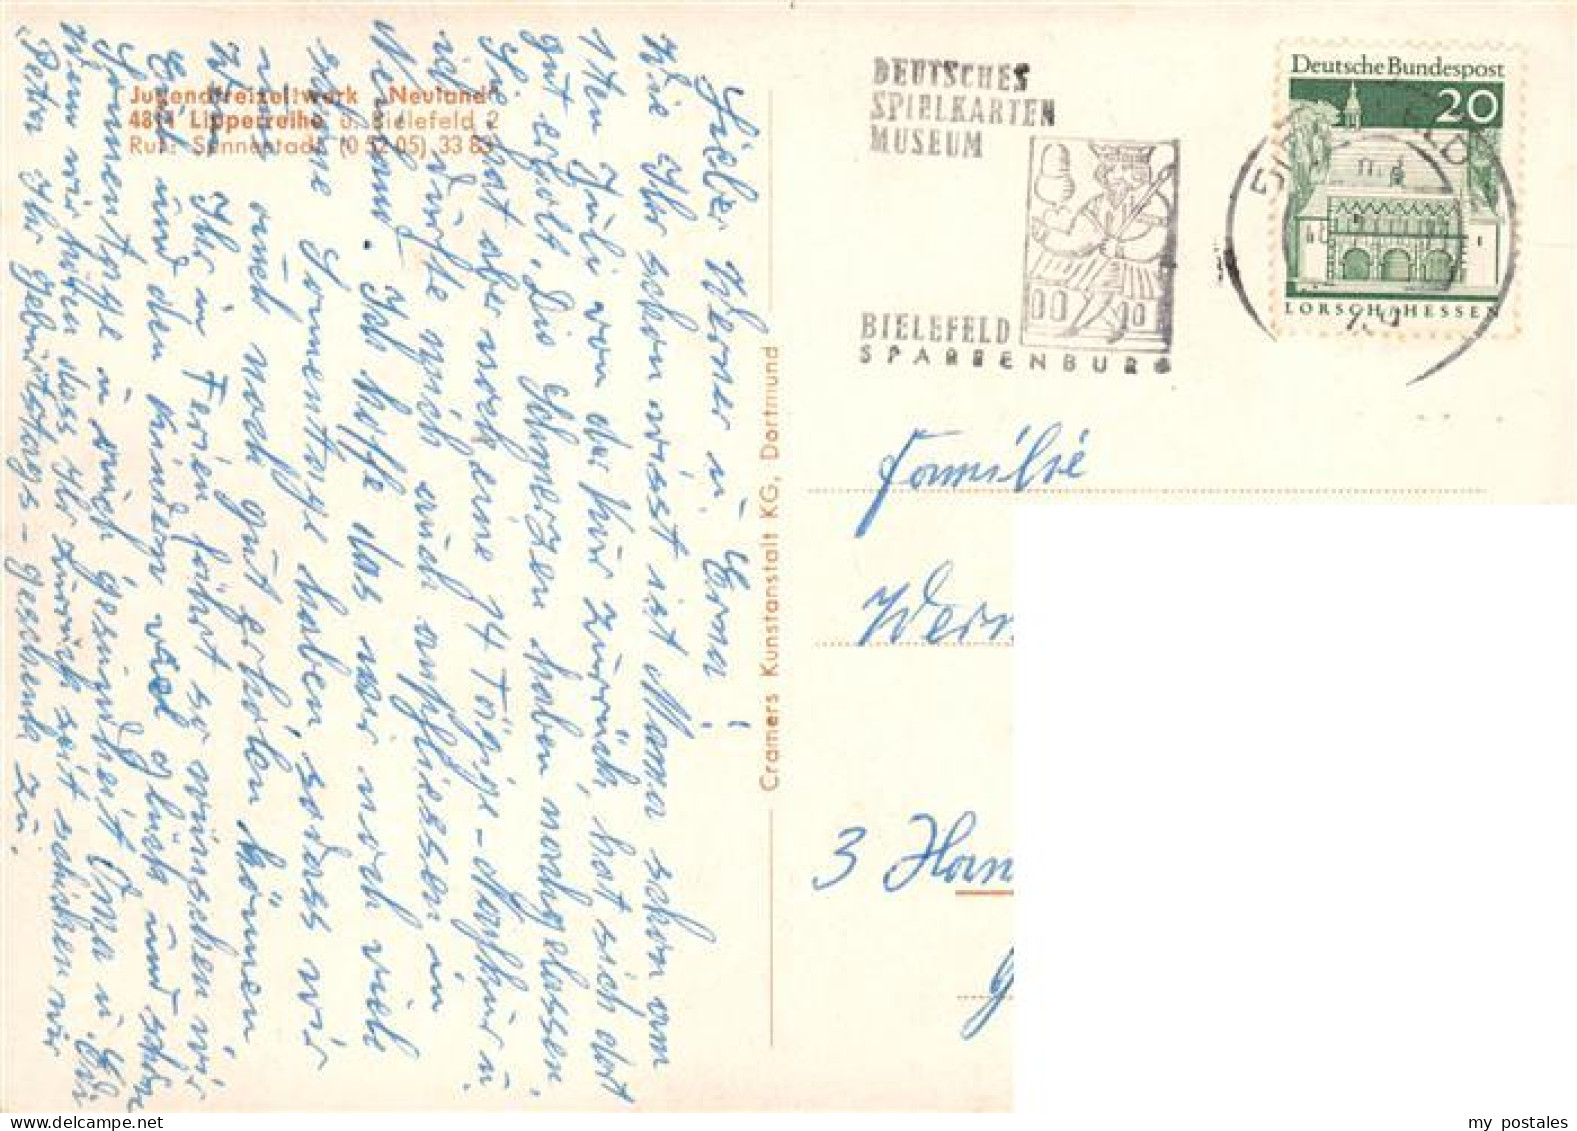 Jugendfreizeitwerk "Neuland"
4811 Lipperreihe ü. Bielefeld 2
Ruf: Sennestadt (0 52 05) 33 83
Lieber Werner u. Erna!
Wie Ihr schon wisst ist Mama schon am
1ten Juli von der Kür zurück, hat sich dort
gut erholt. Die Schmerzen haben nachgelassen,
Sie hat aber noch eine 14 Tägige-Nachkür u.
ich dürfte mich auch anschliessen in
Neuland. Ich hoffe das wir noch viele
schöne Sonnentage haben, sodass wir
uns auch noch gut erholen können
Wenn Ihr in Ferien fährt so wünschen wir
Euch und den Kindern viel glück und schöne
Sonnentage u. auch gesundheit Oma u.
Wenn wir hören dass Ihr zurück seit schicken wir
Peter Ihr Geburtstags-geschenk zu.
Cramers Kunstanstalt KG, Dortmund
DEUTSCHES
SPIELKARTEN
MUSEUM
BIELEFELD
SPARRENBURG
Deutsche Bundespost
20
LORSCH/HESSEN
Familie
Wern
3 Han
my postales